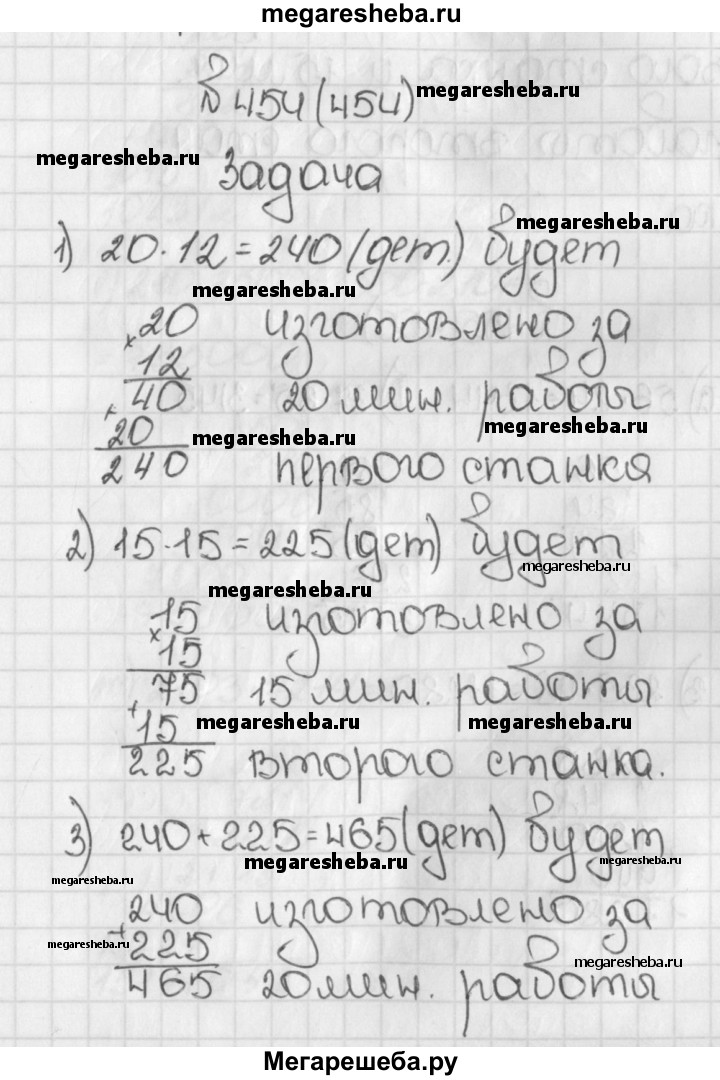 megaresheba.ru
№ 454 (454)
megaresheba.ru
megaresheba.ru
Задача
megaresheba.ru
1) 20·12=240 (дет.) будет
megaresheba.ru
×20 изготовлено за
12
+40 20 мин. работы
megaresheba.ru
20
megaresheba.ru
240 первого станка
2) 15·15=225 (дет) будет
megaresheba.ru
megaresheba.ru
×15 изготовлено за
15
+75 15 мин. работы
15
megaresheba.ru
megaresheba.ru
225 второго станка.
3) 240+225=465 (дет) будет
megaresheba.ru
megaresheba.ru
megaresheba.ru
+240 изготовлено за
225
megaresheba.ru
megaresheba.ru
465 20 мин. работы
Мегарешеба.ру